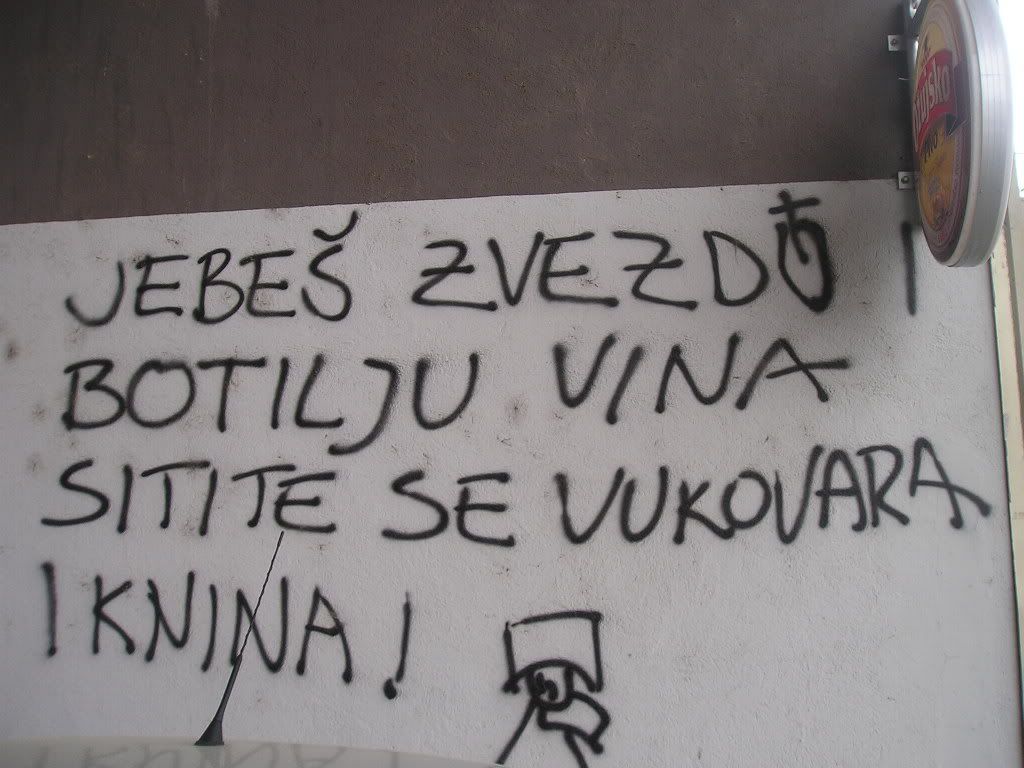 JEBEŠ ZVEZDU I
BOTILJU VINA
SITITE SE VUKOVARA
I KNINA!